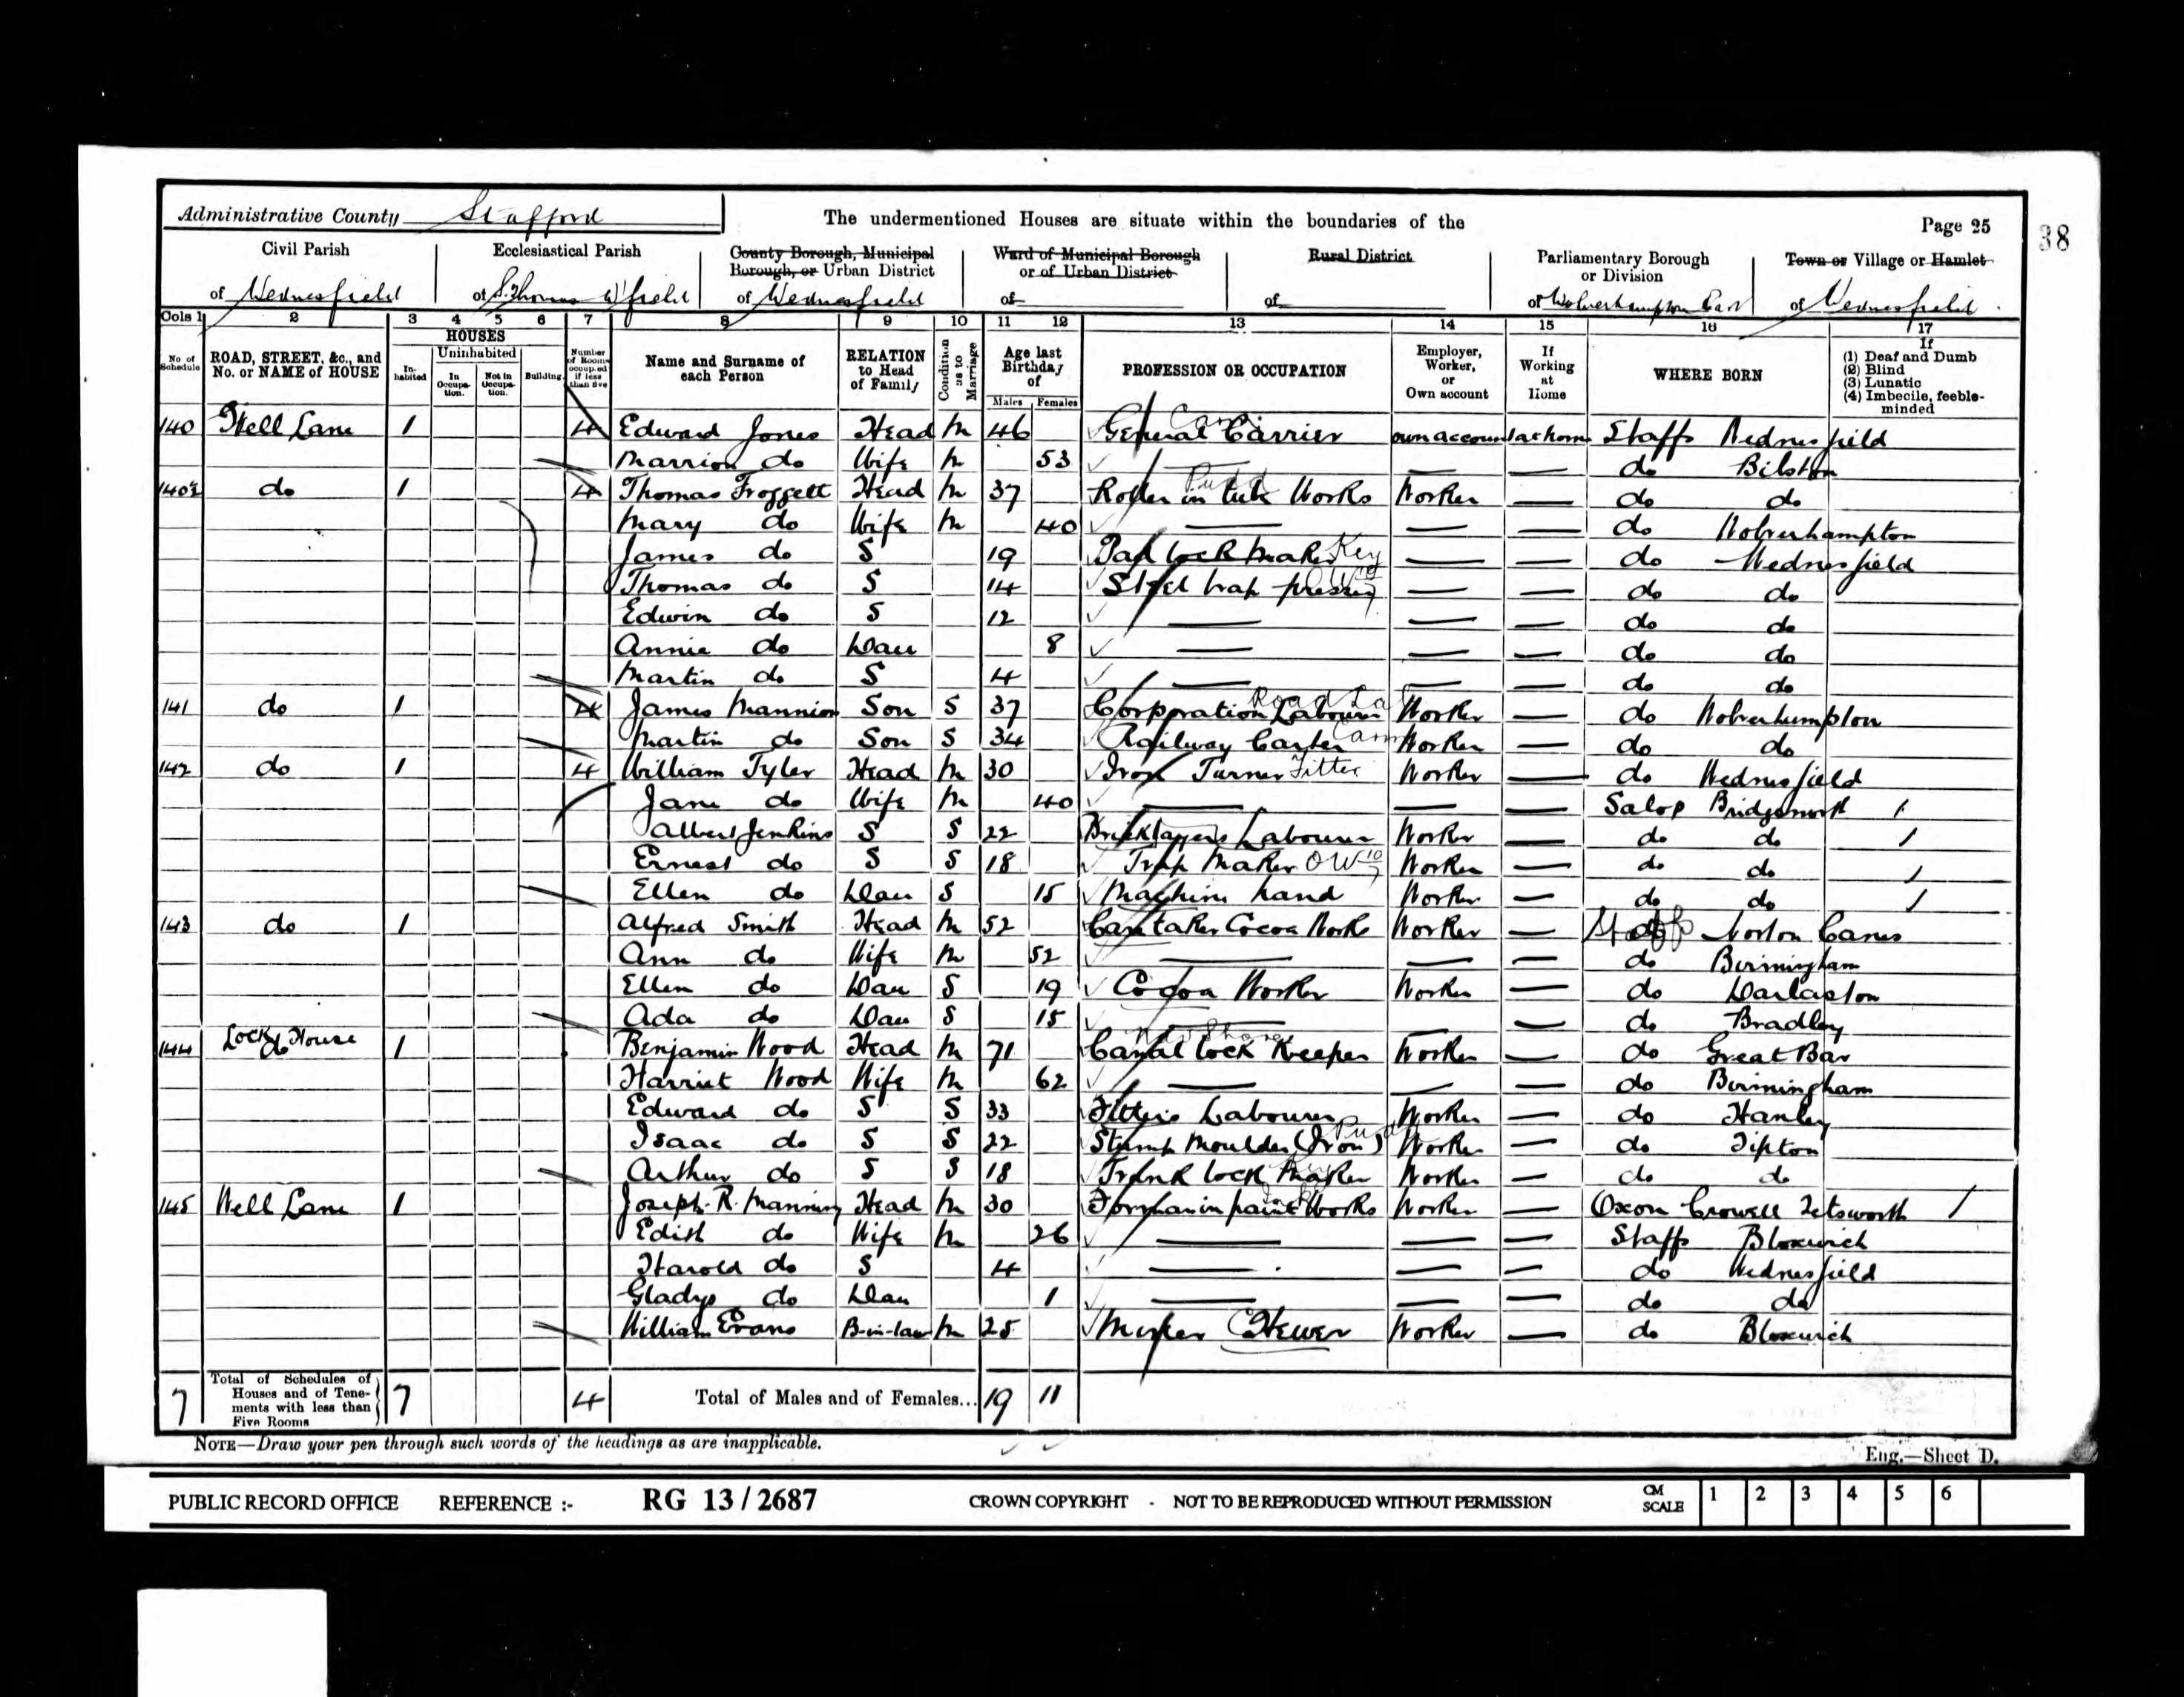 Administrative County Stafford
The undermentioned Houses are situate within the boundaries of the
Page 25
38
Civil Parish of Wednesfield
Ecclesiastical Parish of S. Thomas W'field
County Borough, Municipal Borough, or Urban District of Wednesfield
Ward of Municipal Borough or of Urban District of
Rural District of
Parliamentary Borough or Division of Wolverhampton East
Town or Village or Hamlet of Wednesfield
Cols 1 2 3 4 5 6 7 8 9 10 11 12 13 14 15 16 17
No of Schedule
ROAD, STREET, &c., and No. or NAME of HOUSE
HOUSES
In-habited
Uninhabited
In Occupa-tion.
Not in Occupa-tion.
Building.
Number of Rooms occupied if less than five
Name and Surname of each Person
RELATION to Head of Family
Condition as to Marriage
Age last Birthday of
Males Females
PROFESSION OR OCCUPATION
Employer, Worker, or Own account
If Working at Home
WHERE BORN
If (1) Deaf and Dumb (2) Blind (3) Lunatic (4) Imbecile, feeble-minded
140 Well Lane 1 4 Edward Jones Head M 46 General Carrier own account at home Staffs Wednesfield
Marrion do Wife M 53 — — do Bilston
do 1 4 Thomas Froggett Head M 37 Roller in tube Works Worker — do do
Mary do Wife M 40 — — — do Wolverhampton
James do S 19 Pad lock maker Key — — do Wednesfield
Thomas do S 14 Steel trap — — do do
Edwin do S 12 — — — do do
Annie do Dau 8 — — — do do
Martin do S 4 — — — do do
141 do 1 4 James Mannion Son S 37 Corporation Labourer Road La Worker — do Wolverhampton
Martin do Son S 34 Railway Carter Worker — do do
142 do 1 4 William Tyler Head M 30 Iron Turner Fitter Worker — do Wednesfield
Jane do Wife M 40 — — — Salop Bridgenorth 1
Albert Jenkins S S 22 Bricklayers Labourer Worker do do 1
Ernest do S S 18 Trap Maker Worker — do do 1
Ellen do Dau S 15 Machine hand Worker — do do 1
143 do 1 Alfred Smith Head M 52 Caretaker Cocoa Works Worker — Staffs Norton Canes
Ann do Wife M 52 — — — do Birmingham
Ellen do Dau S 19 Cocoa Worker Worker — do Darlaston
Ada do Dau S 15 — — — do Bradley
144 Lock House 1 Benjamin Wood Head M 71 Canal Lock Keeper Worker — do Great Bar
Harriet Wood Wife M 62 — — — do Birmingham
Edward do S S 33 Fitters Labourer Worker — do Hanley
Isaac do S S 22 Stump Moulder (Iron) Worker — do Tipton
Arthur do S S 18 Trunk lock Maker Worker — do do
145 Well Lane 1 Joseph. R. Manning Head M 30 Forman in paint Works Worker — Oxon Crowell Tetsworth 1
Edith do Wife M 26 — — — Staffs Bloxwich
Harold do S 4 — — — do Wednesfield
Gladys do Dau 1 — — — do do
William Evans B-in-law M 25 Hewer Worker — do Bloxwich
7 Total of Schedules of Houses and of Tene-ments with less than Five Rooms 7 4 Total of Males and of Females... 19 11
NOTE—Draw your pen through such words of the headings as are inapplicable.
Eng.—Sheet D.
PUBLIC RECORD OFFICE REFERENCE :- RG 13 / 2687 CROWN COPYRIGHT - NOT TO BE REPRODUCED WITHOUT PERMISSION CM SCALE 1 2 3 4 5 6